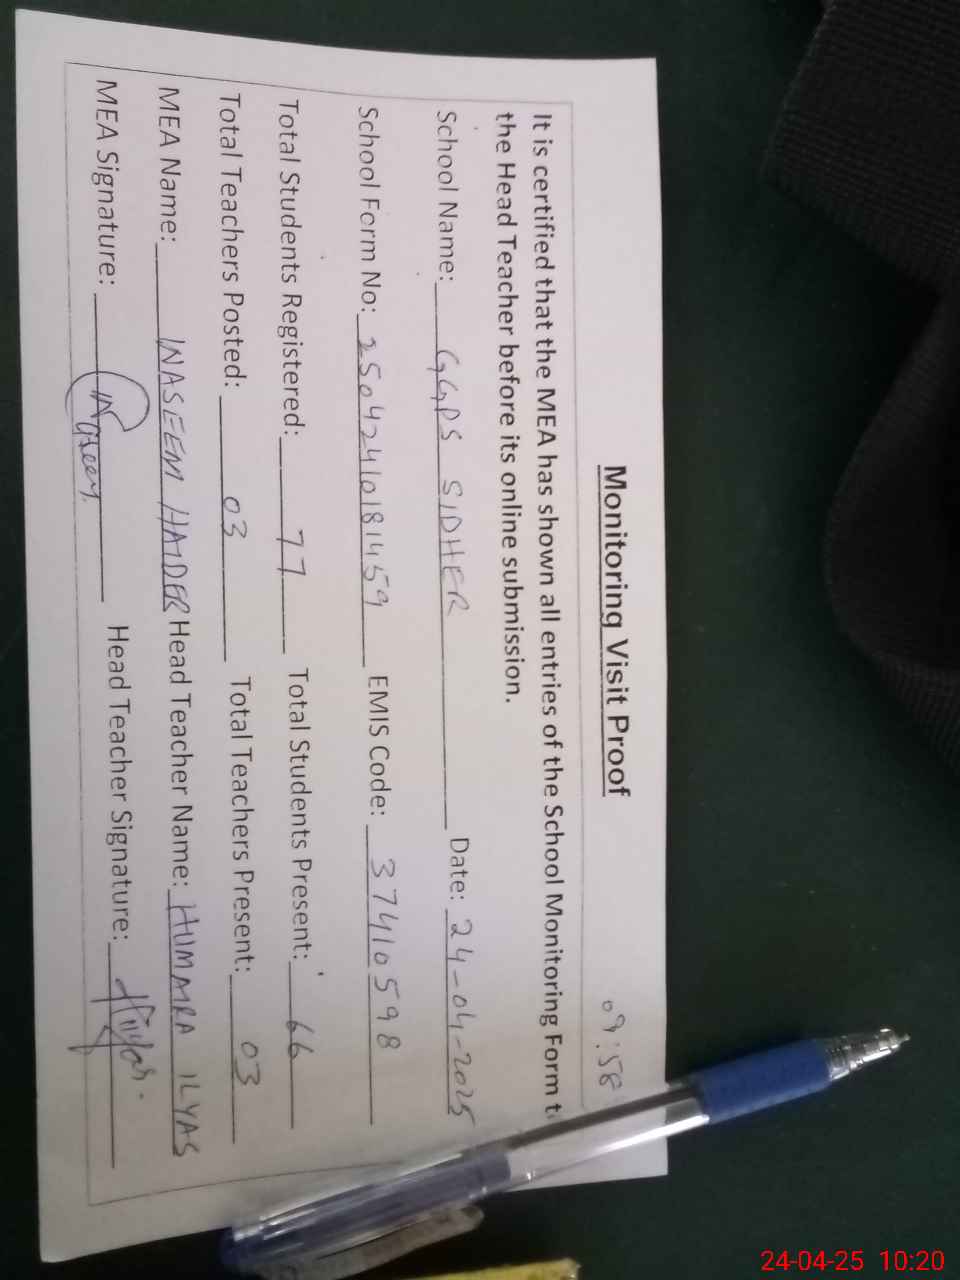 Monitoring Visit Proof
09:58
It is certified that the MEA has shown all entries of the School Monitoring Form t
the Head Teacher before its online submission.
School Name: GGPS SIDHER Date: 24-04-2025
School Form No: 25042410181459 EMIS Code: 37410598
Total Students Registered: 77 Total Students Present: 66
Total Teachers Posted: 03 Total Teachers Present: 03
MEA Name: NASEEM HAIDER Head Teacher Name: HUMAIRA ILYAS
MEA Signature: Naseem Head Teacher Signature:
24-04-25 10:20